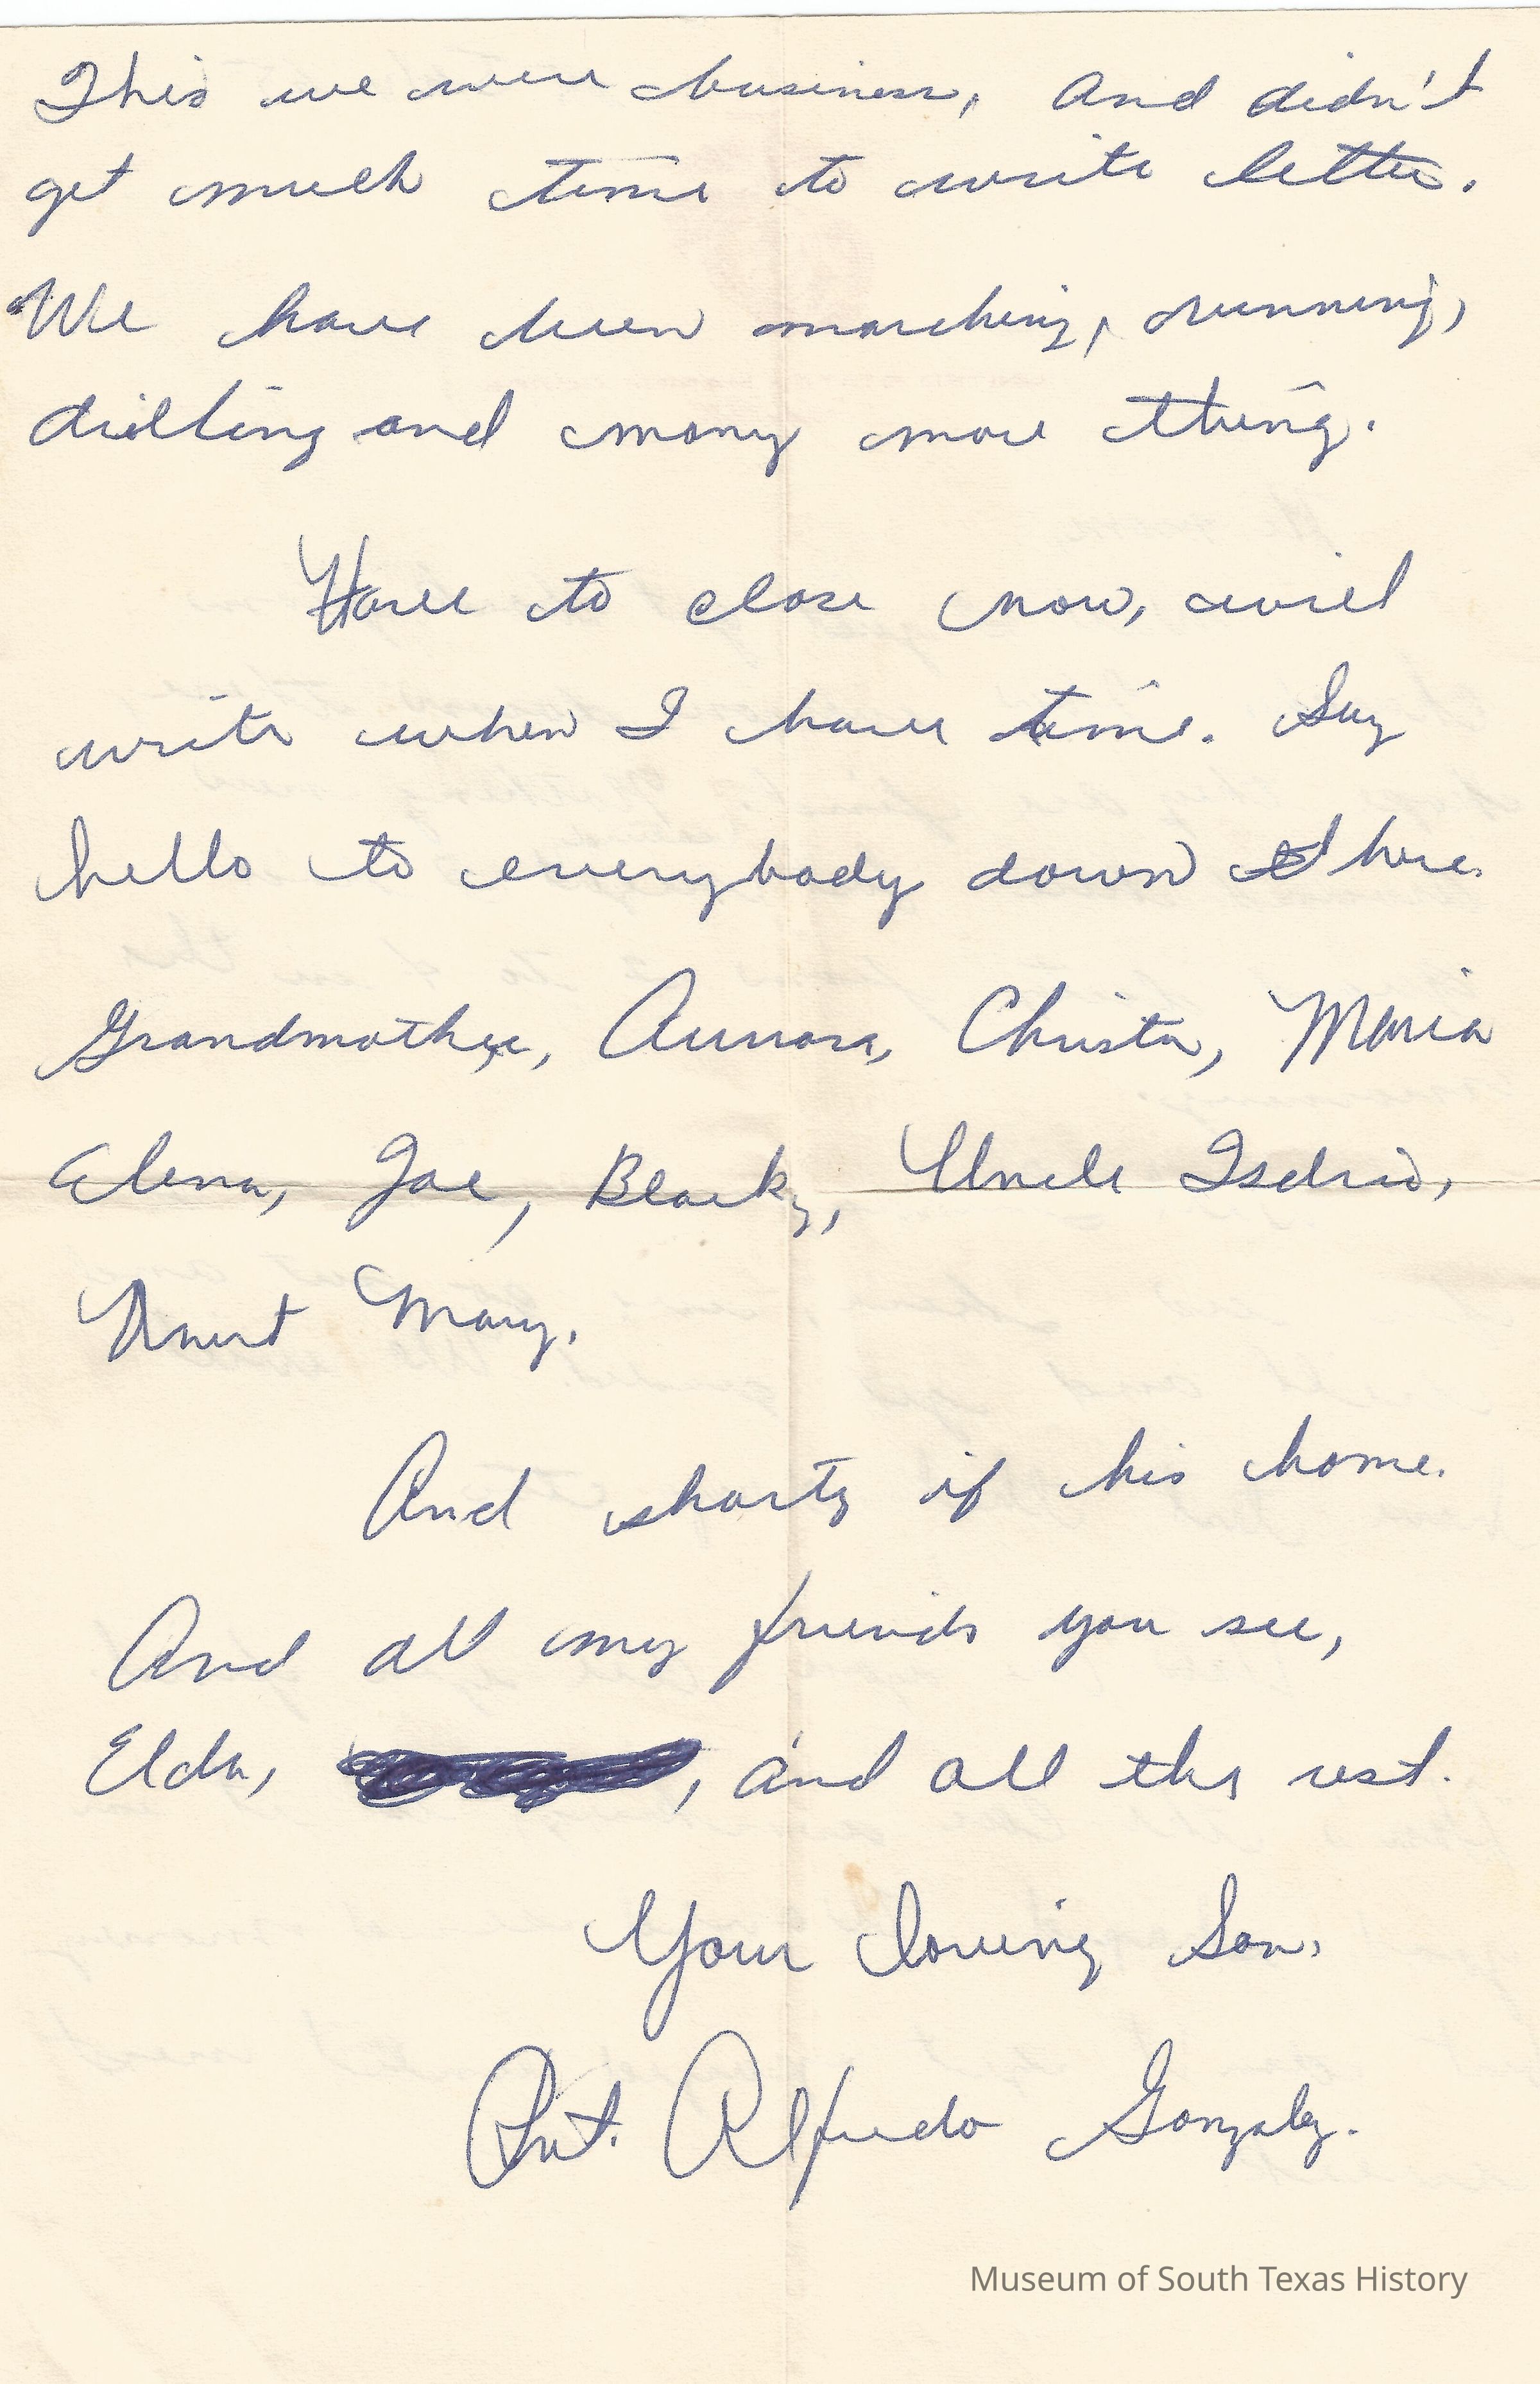 This we were business, And didn't
get much time to write letter.
We have been marching, running,
drilling and many more thing.
Have to close now, will
write when I have time. Say
hello to everybody down there.
Grandmother, Aurora, Christa, Maria
Elena, Joe, Blacky, Uncle Isdrio,
Anunt Mary.
And shorty if his home.
And all my friends you see,
Elda, , and all the rest.
Your loving Son,
Pvt. Alfredo Gonzalez.
Museum of South Texas History